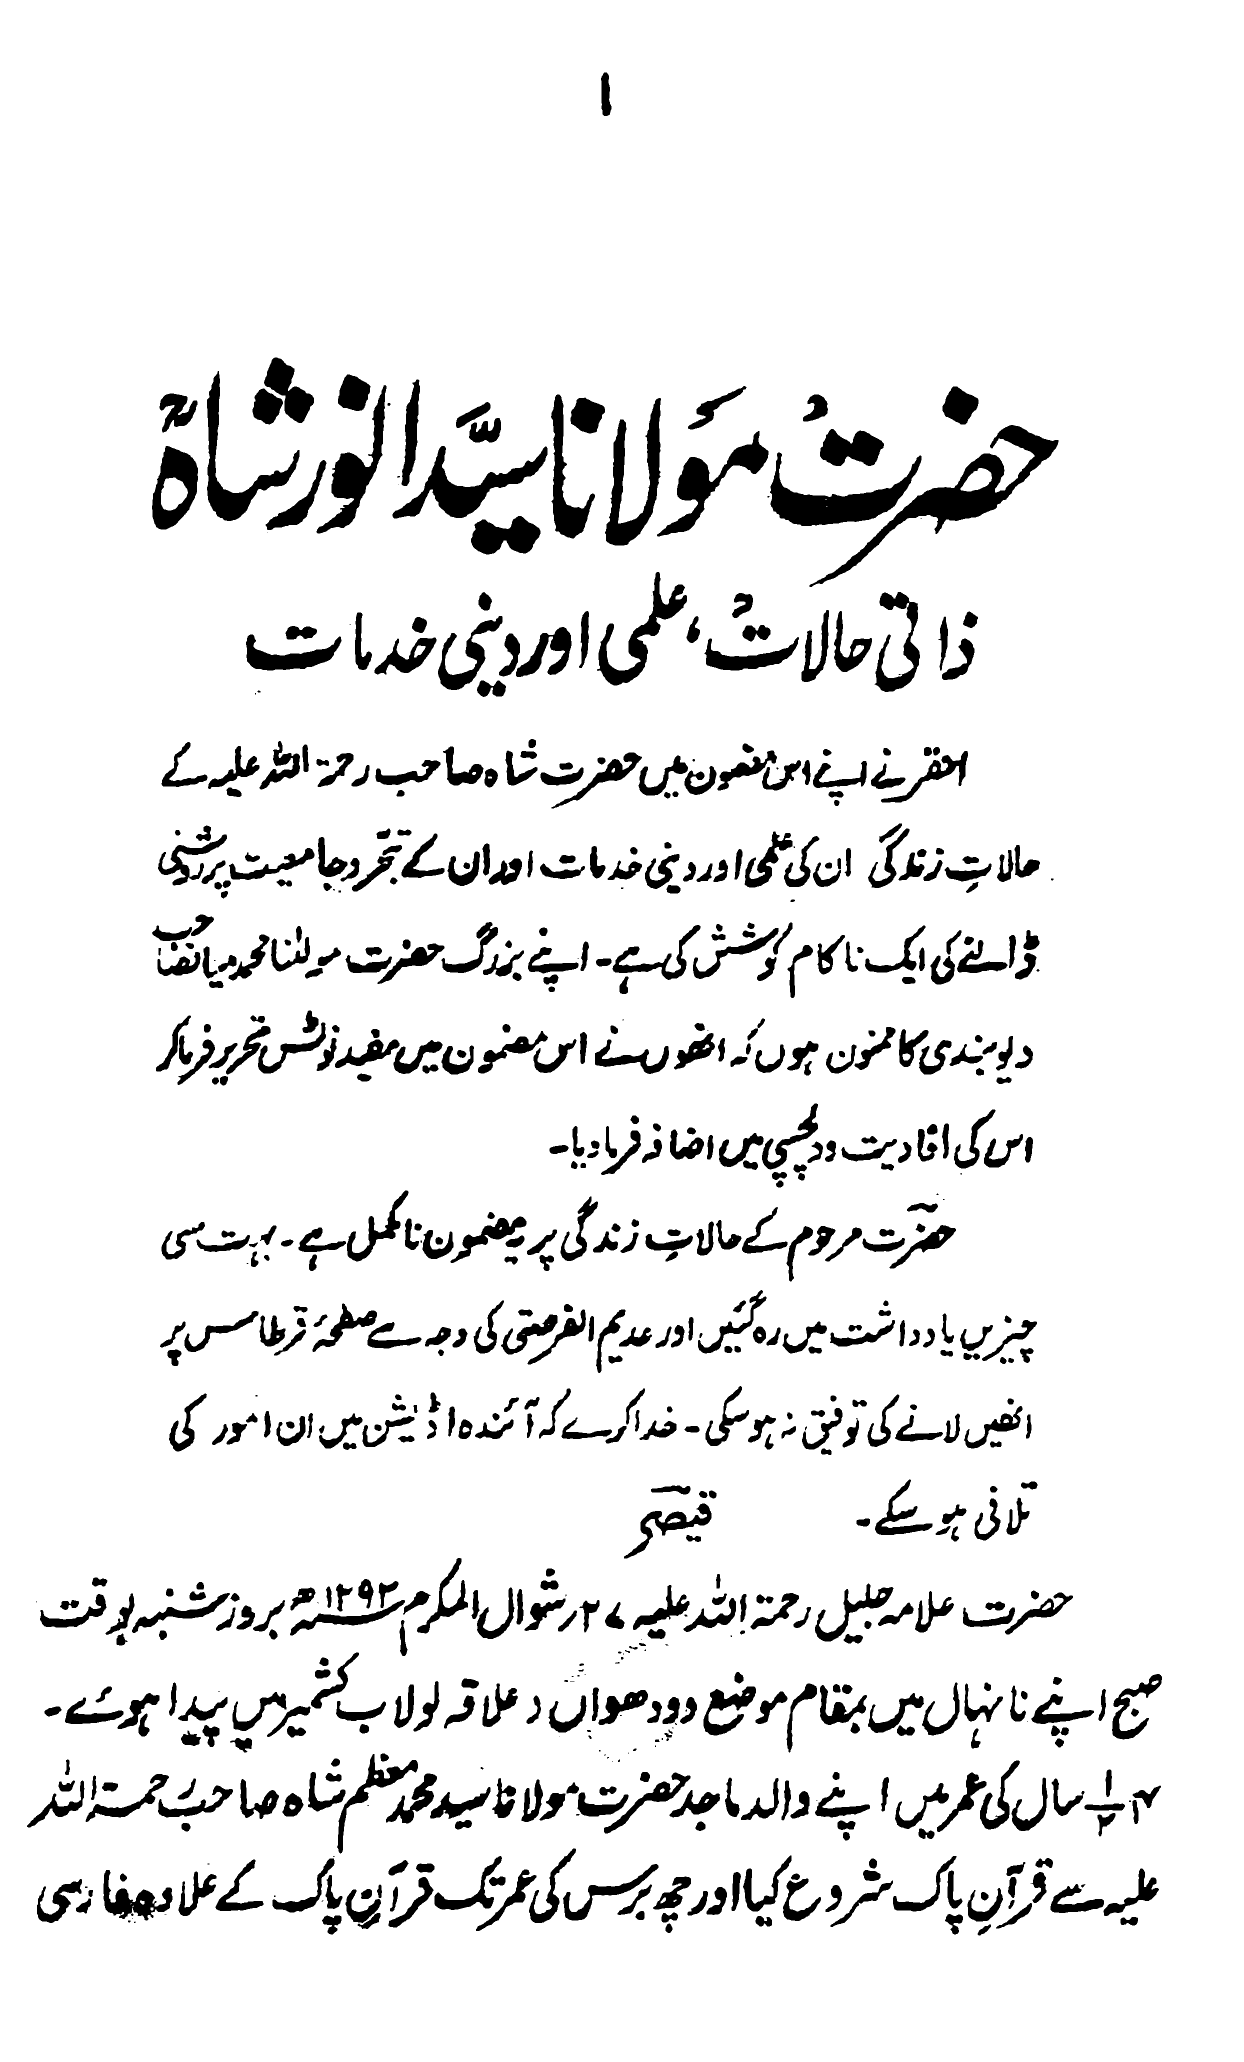 ۱
حضرت مولانا سیّد انور شاہؒ
ذاتی حالات، علمی اور دینی خدمات
احقر نے اپنے اس مضمون میں حضرت شاہ صاحب رحمۃ اللہ علیہ کے
حالاتِ زندگی ان کی علمی اور دینی خدمات اور ان کے تبحّر و جامعیت پر روشنی
ڈالنے کی ایک ناکام کوشش کی ہے۔ اپنے بزرگ حضرت مولٰنا محمد میانصاحب
دیوبندی کا ممنون ہوں کہ انھوں نے اس مضمون میں مفید نوٹس تحریر فرما کر
اس کی افادیت و دلچسپی میں اضافہ فرما دیا۔
حضرت مرحوم کے حالاتِ زندگی پر یہ مضمون نامکمل ہے۔ بہت سی
چیزیں یادداشت میں رہ گئیں اور عدیم الفرصتی کی وجہ سے صفحۂ قرطاس پر
انھیں لانے کی توفیق نہ ہوسکی۔ خدا کرے کہ آئندہ اڈیشن میں ان امور کی
تلافی ہو سکے۔ قیصر
حضرت علامہ جلیل رحمۃ اللہ علیہ ۲۷ر شوال المکرم ۱۲۹۲ھ بروز شنبہ بوقت
صبح اپنے نانہال میں بمقام موضع دودھواں دعلاقہ لولاب کشمیر میں پیدا ہوئے۔
۴ ۱/۲ سال کی عمر میں اپنے والد ماجد حضرت مولانا سید محمد معظم شاہ صاحب رحمۃ اللہ
علیہ سے قرآنِ پاک شروع کیا اور چھ برس کی عمر تک قرآنِ پاک کے علاوہ فارسی